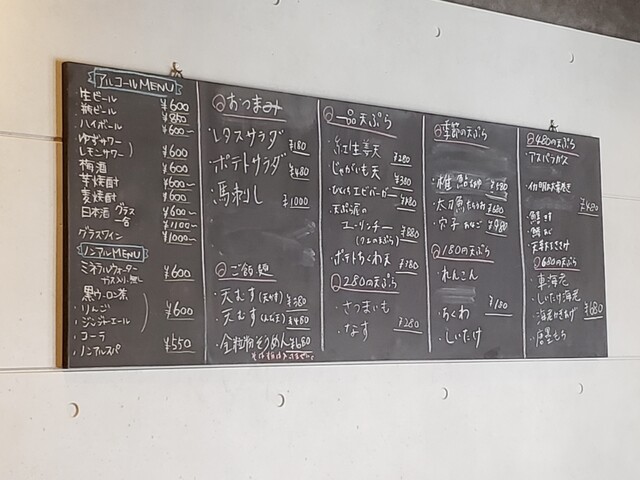 アルコールMENU
生ビール ¥600
瓶ビール ¥850
ハイボール ¥600〜
ゆずサワー
レモンサワー ¥600
梅酒 ¥600
芋焼酎 ¥600〜
麦焼酎 ¥600
日本酒 グラス ¥600〜
一合 ¥1100〜
グラスワイン ¥1000〜
ノンアルMENU
ミネラルウォーター ¥600
ガス入り、無し
黒ウーロン茶
りんご ¥600
ジンジャーエール
・コーラ
・ノンアルスパ ¥550
おつまみ
・レタスサラダ ¥180
・ポテトサラダ ¥480
・馬刺し ¥1000
ご飯、麺
・天むす ¥380
・天むす ¥480
・全粒粉そうめん ¥680
一品天ぷら
・紅生姜天 ¥280
・じゃがいも天 ¥380
・ひとくちエビバーガー ¥480
・天ぷら屋の
エーリンチー ¥880
・ポテトちくわ天 ¥780
280の天ぷら
・さつまいも
・なす ¥280
季節の天ぷら
・稚鮎 ¥580
・太刀魚 ¥680
・穴子 ¥980
180の天ぷら
・れんこん
・ちくわ ¥180
・しいたけ
480の天ぷら
・アスパラガス
¥480
680の天ぷら
・車海老
・しいたけ海老
・海老かきあげ ¥680